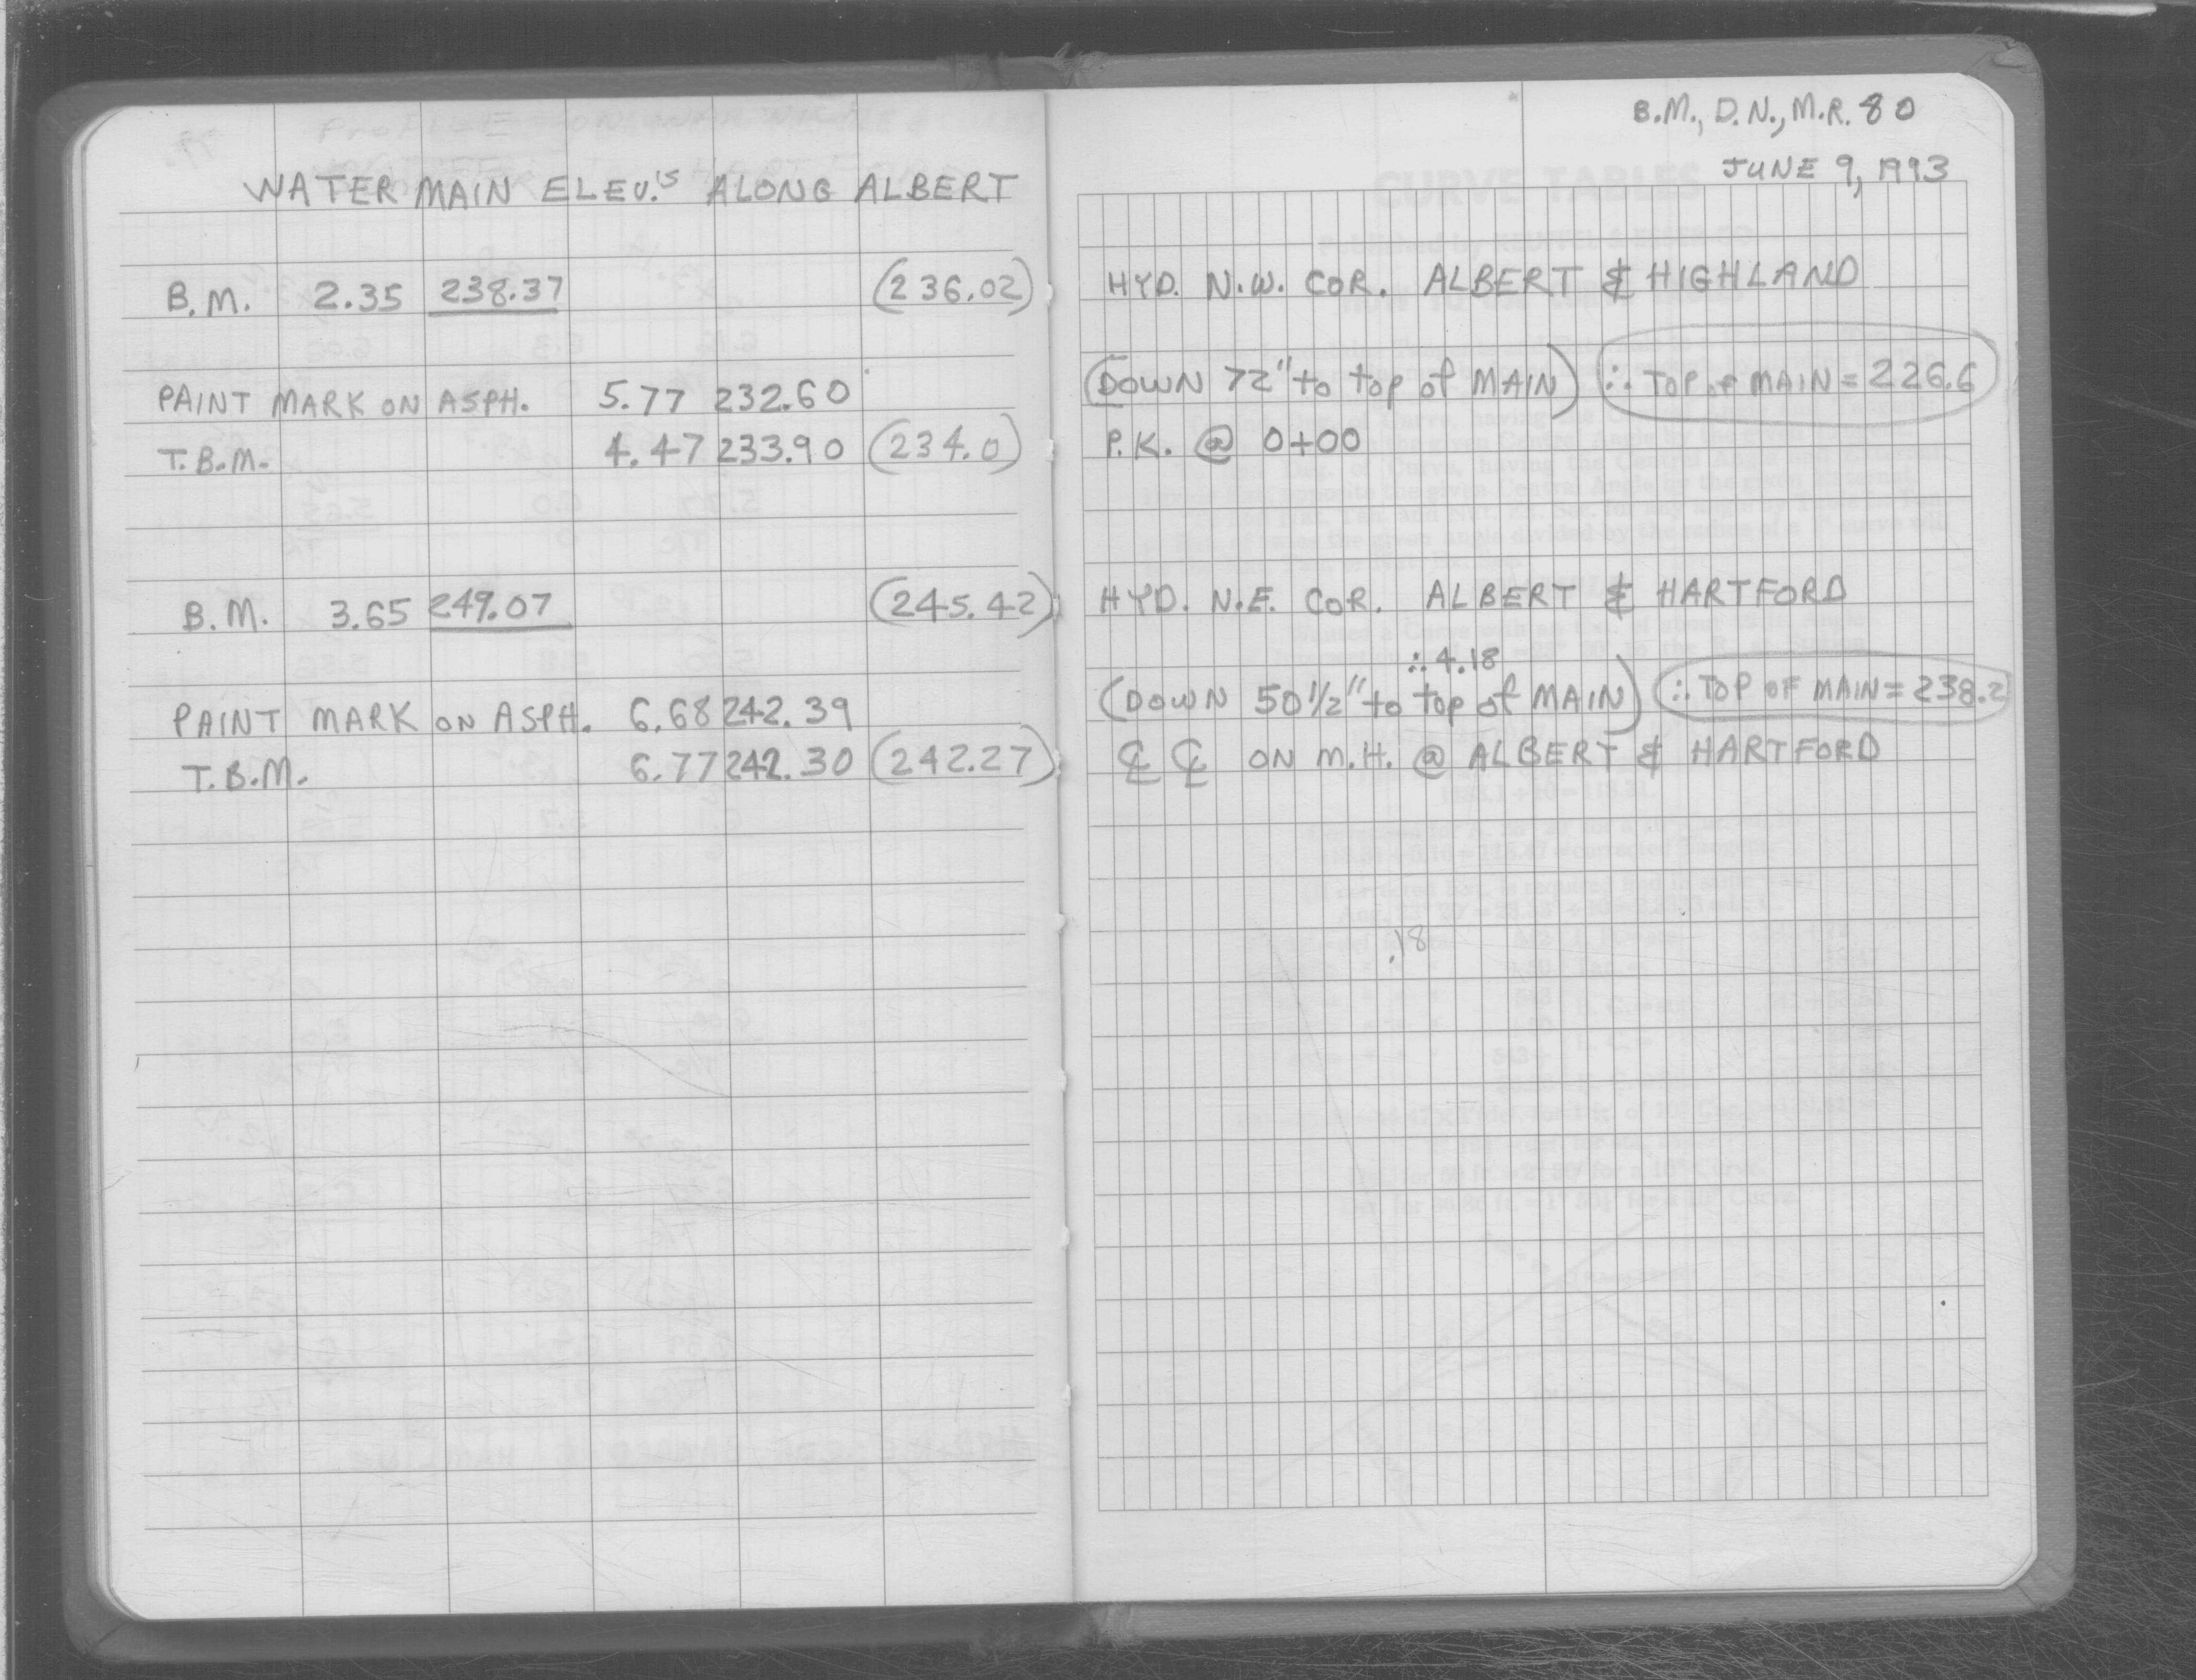 WATER MAIN ELEV.'S ALONG ALBERT
B.M. 2.35 238.37 (236.02)
PAINT MARK ON ASPH. 5.77 232.60
T.B.M. 4.47 233.90 (234.0)
B.M. 3.65 249.07 (245.42)
PAINT MARK ON ASPH. 6.68 242.39
T.B.M. 6.77 242.30 (242.27)
B.M., D.N., M.R. 80
JUNE 9, 1993
CURVE TABLES
HYD. N.W. COR. ALBERT & HIGHLAND
(DOWN 72" to top of MAIN) ∴ TOP OF MAIN = 226.6
P.K. @ 0+00
HYD. N.E. COR. ALBERT & HARTFORD
∴ 4.18
(DOWN 50 1/2" to top of MAIN) ∴ TOP OF MAIN = 238.2
℄ ℄ ON M.H. @ ALBERT & HARTFORD
.18